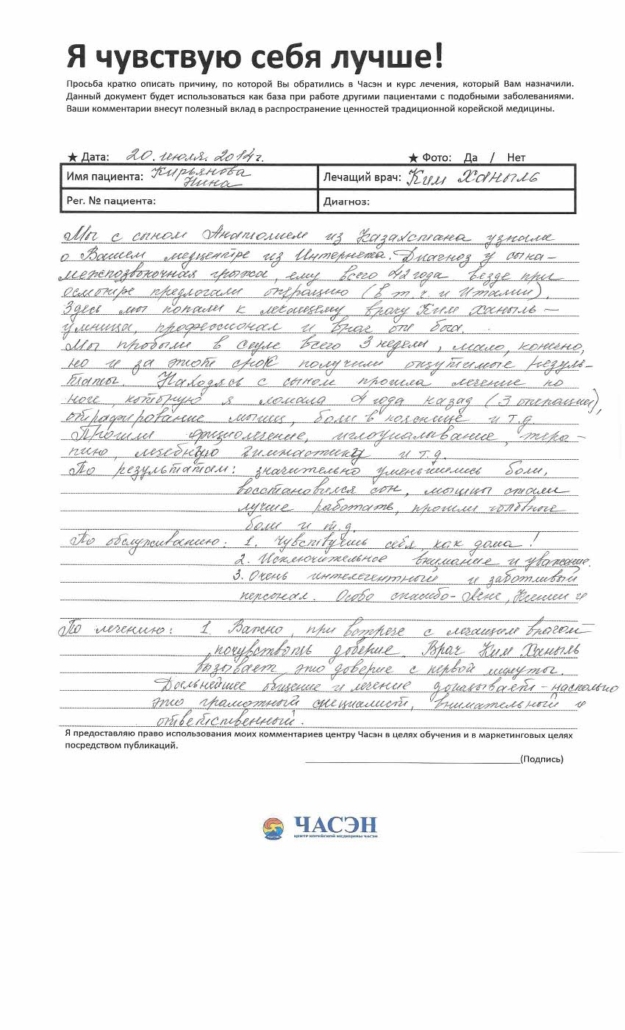 Я чувствую себя лучше!
Просьба кратко описать причину, по которой Вы обратились в Часэн и курс лечения, который Вам назначили.
Данный документ будет использоваться как база при работе другими пациентами с подобными заболеваниями.
Ваши комментарии внесут полезный вклад в распространение ценностей традиционной корейской медицины.
★ Дата: 20. июля. 2014г. ★ Фото: Да / Нет
Имя пациента: Кирьянова Нина Лечащий врач: Ким Ханыль
Рег. № пациента: Диагноз:
Мы с сыном Анатолием из Казахстана узнали
о Вашем медцентре из Интернета. Диагноз у сына-
межпозвоночная грыжа, ему всего 42 года везде при
осмотре предлогали операцию (в т.ч. и Италии).
Здесь мы попали к лечащему врачу Ким Ханыль –
умница, профессионал и врач от бога.
Мы пробыли в Сеуле всего 3 недели, мало, конечно,
но и за этот срок получили ощутимые резуль-
таты. Находясь с сыном прошла лечение по
ноге, которую я ломала 4 года назад (3 операции),
отрафирование мышц, боли в пояснице и т.д
Прошли физиолечение, иглоукалывание, тера-
пию, лечебную гимнастику и т.д.
По результатам: значительно уменьшились боли,
восстановился сон, мышцы стали
лучше работать, прошли головные
боли и т.д.
По обслуживанию: 1. Чувствуешь себя как дома!
2. Исключительное внимание и уважение.
3. Очень интелегентный и заботливый
персонал. Особо спасибо - Яне, Ксении и
По лечению: 1. Важно, при встрече с лечащим врачом
почувствовать доверие. Врач Ким Ханыль
вызывает это доверие с первой минуты.
Дальнейшее общение и лечение доказывает – насколько
это грамотный специалист, внимательный и
ответственный.
Я предоставляю право использования моих комментариев центру Часэн в целях обучения и в маркетинговых целях
посредством публикаций.
(Подпись)
ЧАСЭН